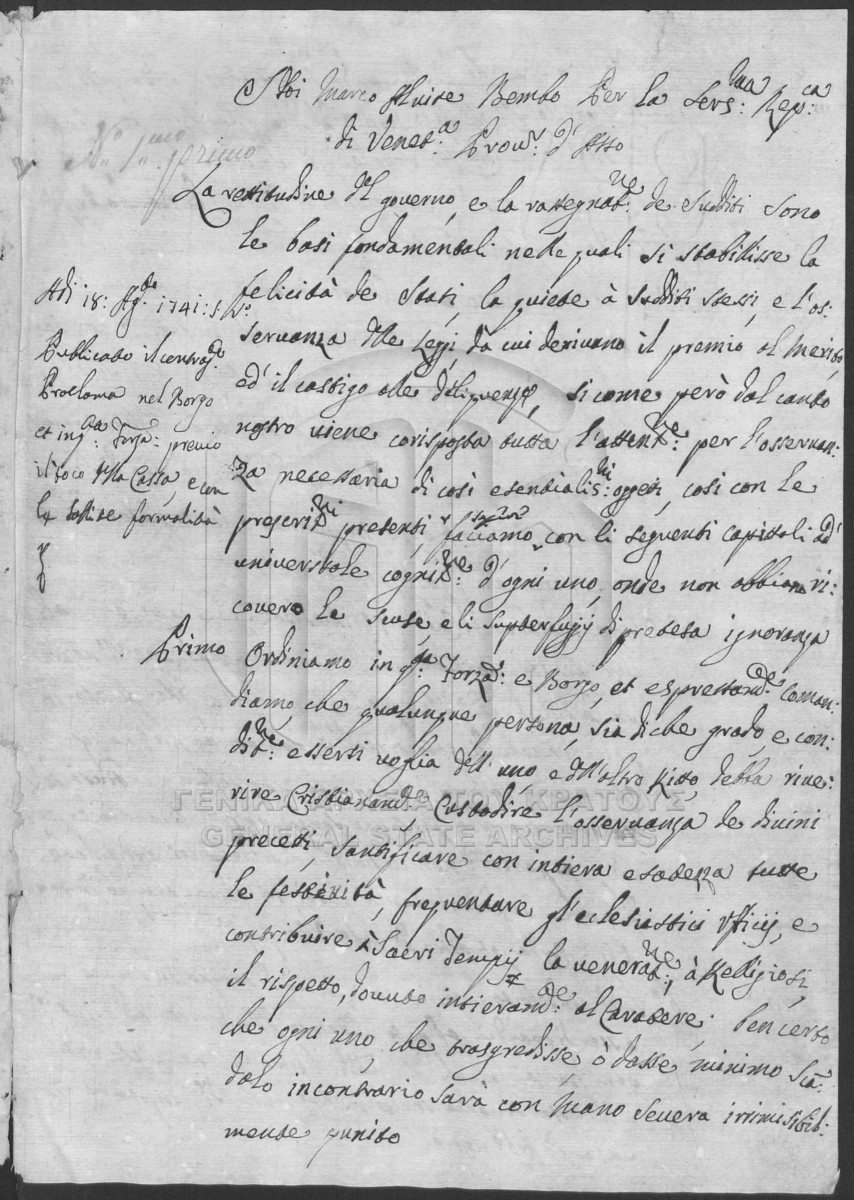 Noi Marco Alvise Bembo Per la Sers:ma Rep:ca
di Venet:a Prov:r d'Asso
N.o 1.mo primo
La rettitudine del governo, e la rassegnat:ne de Sudditi sono
le basi fondamentali nelle quali si stabilisse la
felicità de Stati, la quiete à Sudditi stessi, e l'os:
servanza delle Leggi, da cui derivano il premio al merito,
ed' il castigo alle deliquenze, sicome però dal canto
nostro viene corisposta tutta l'attent:ne per l'osservan:
za necessaria di così esentialis:mi oggetti, così con le
presenti facciamo con li seguenti capitoli ad'
universale cognit:ne d'ogni uno, onde non abbiano ri:
covero le scuse, e li supterfugij di pretesa ignoranza
Adi 18: Ag:to 1741: S.N.
Publicato il contrad:o
Proclama nel Borgo
et in q:ta Forza: previo
il toco della Cassa, e con
le solite formalità
Primo Ordiniamo in q:ta Forza: e Borgo, et espressam:te coman:
diamo, che qualunque persona, sia di che grado, e con:
dit:ne essersi voglia dell'uno, e dell'altro Ritto, debba vive:
rire Cristianam:te, Custodire l'osservanza de divini
precetti, santificare con intiera esatezza tutte
le festività, frequentare gl'eclesiastici Ufficij, e
contribuire à Sacri Tempij la venerat:ne, à Relligiosi,
il rispetto, dovuto intieram:te al Carattere; ben certo
che ogni uno, che trasgredisse, ò dasse, minimo scan:
dalo incontrario sarà con mano severa irrimisibil:
mente punito
ΓΕΝΙΚΑ ΑΡΧΕΙΑ ΤΟΥ ΚΡΑΤΟΥΣ
GENERAL STATE ARCHIVES